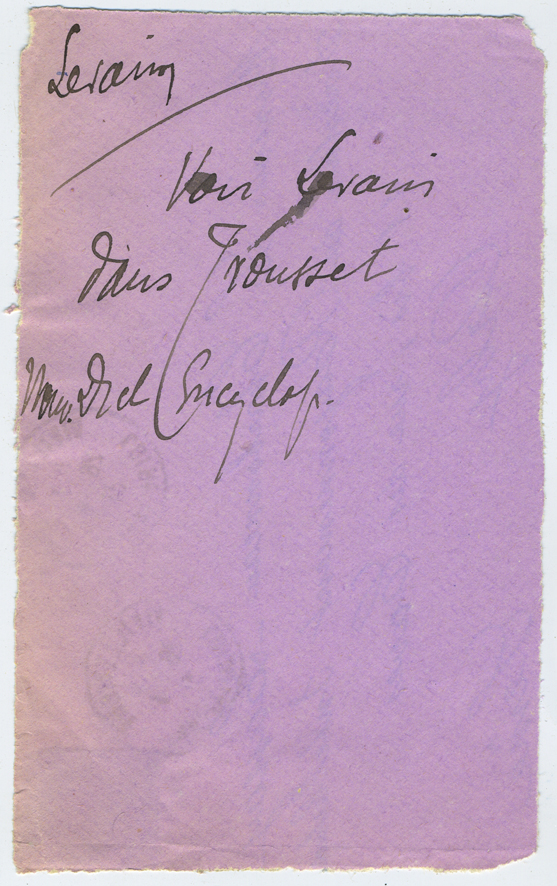 Serain
Voir Serain
dans Trousset
Nouv. Dict Encyclop.